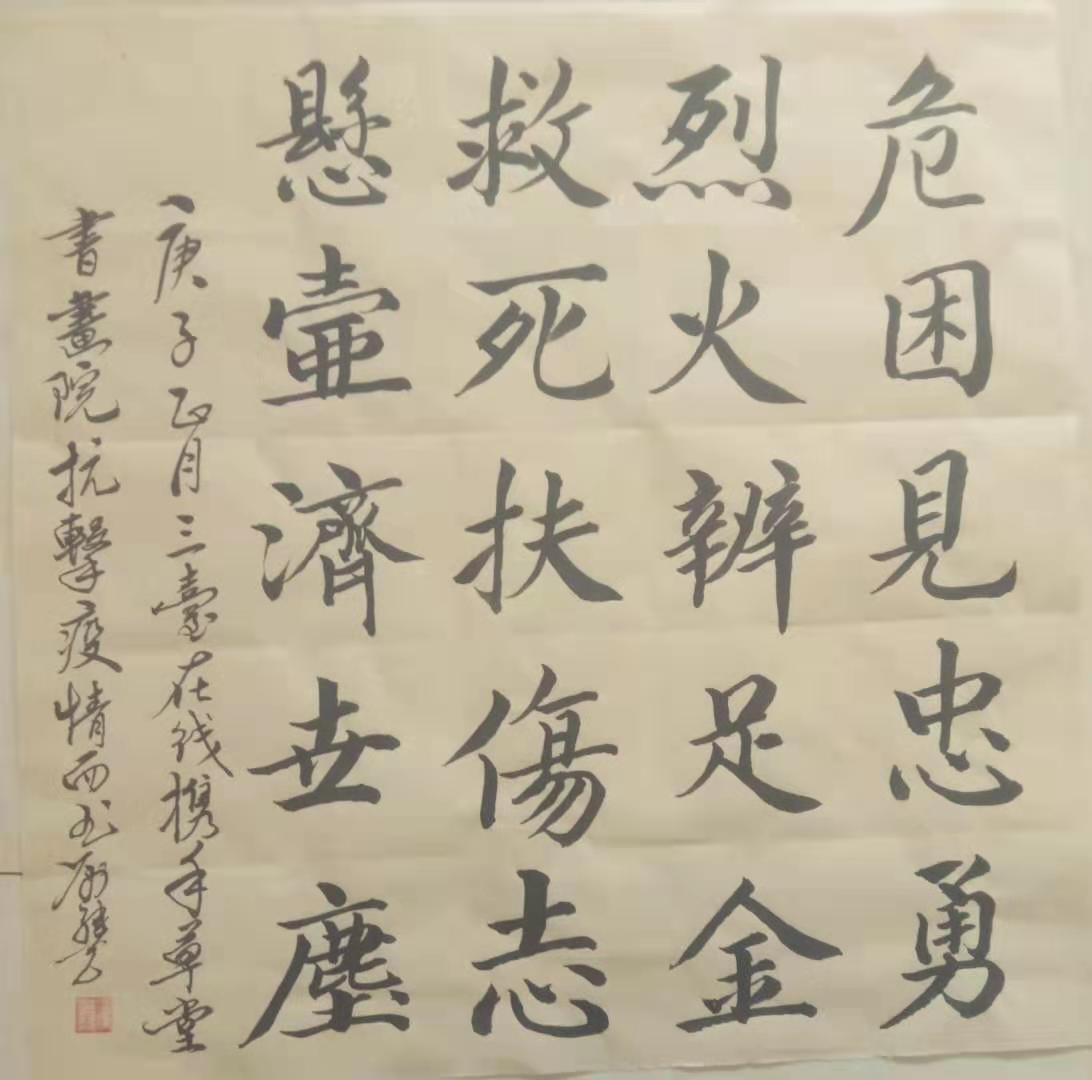 危困見忠勇
烈火辨足金
救死扶傷志
懸壺濟世塵
庚子正月三臺在线攜手草堂
書畫院抗擊疫情而书